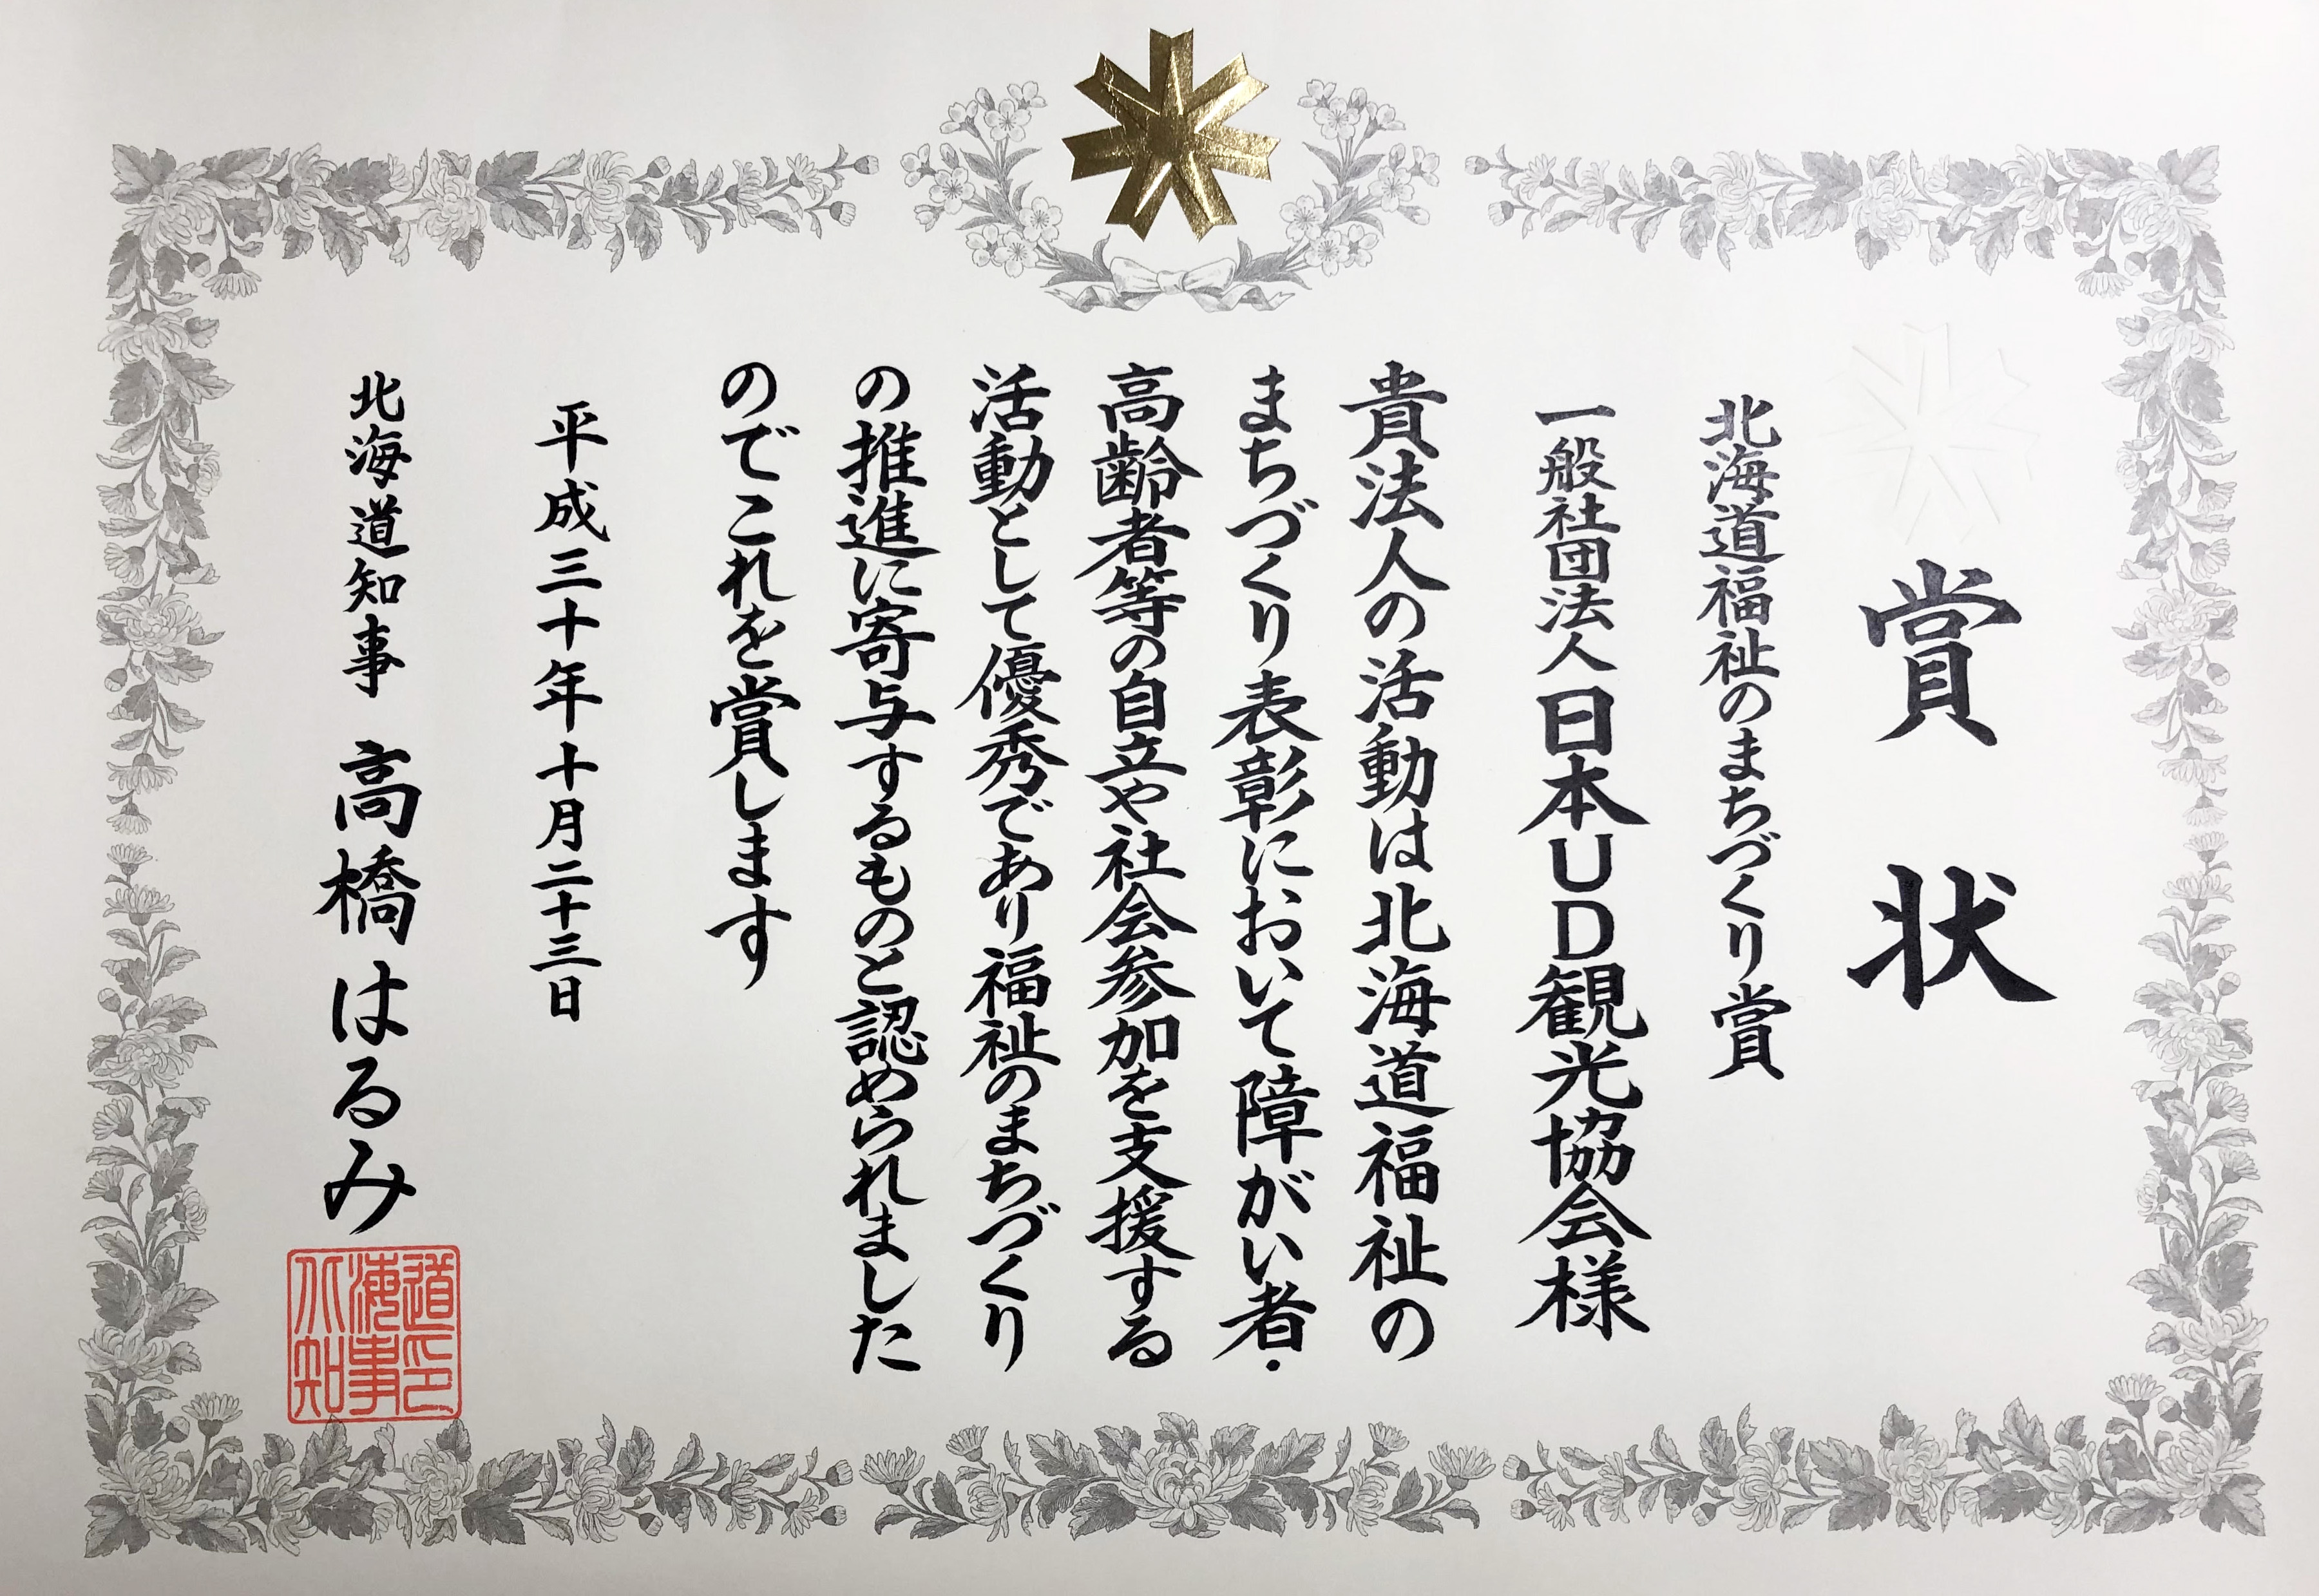 賞状
北海道福祉のまちづくり賞
一般社団法人日本UD観光協会様
貴法人の活動は北海道福祉の
まちづくり表彰において障がい者・
高齢者等の自立や社会参加を支援する
活動として優秀であり福祉のまちづくり
の推進に寄与するものと認められました
のでこれを賞します
平成三十年十月二十三日
北海道知事 高橋はるみ
道印
海事
北知